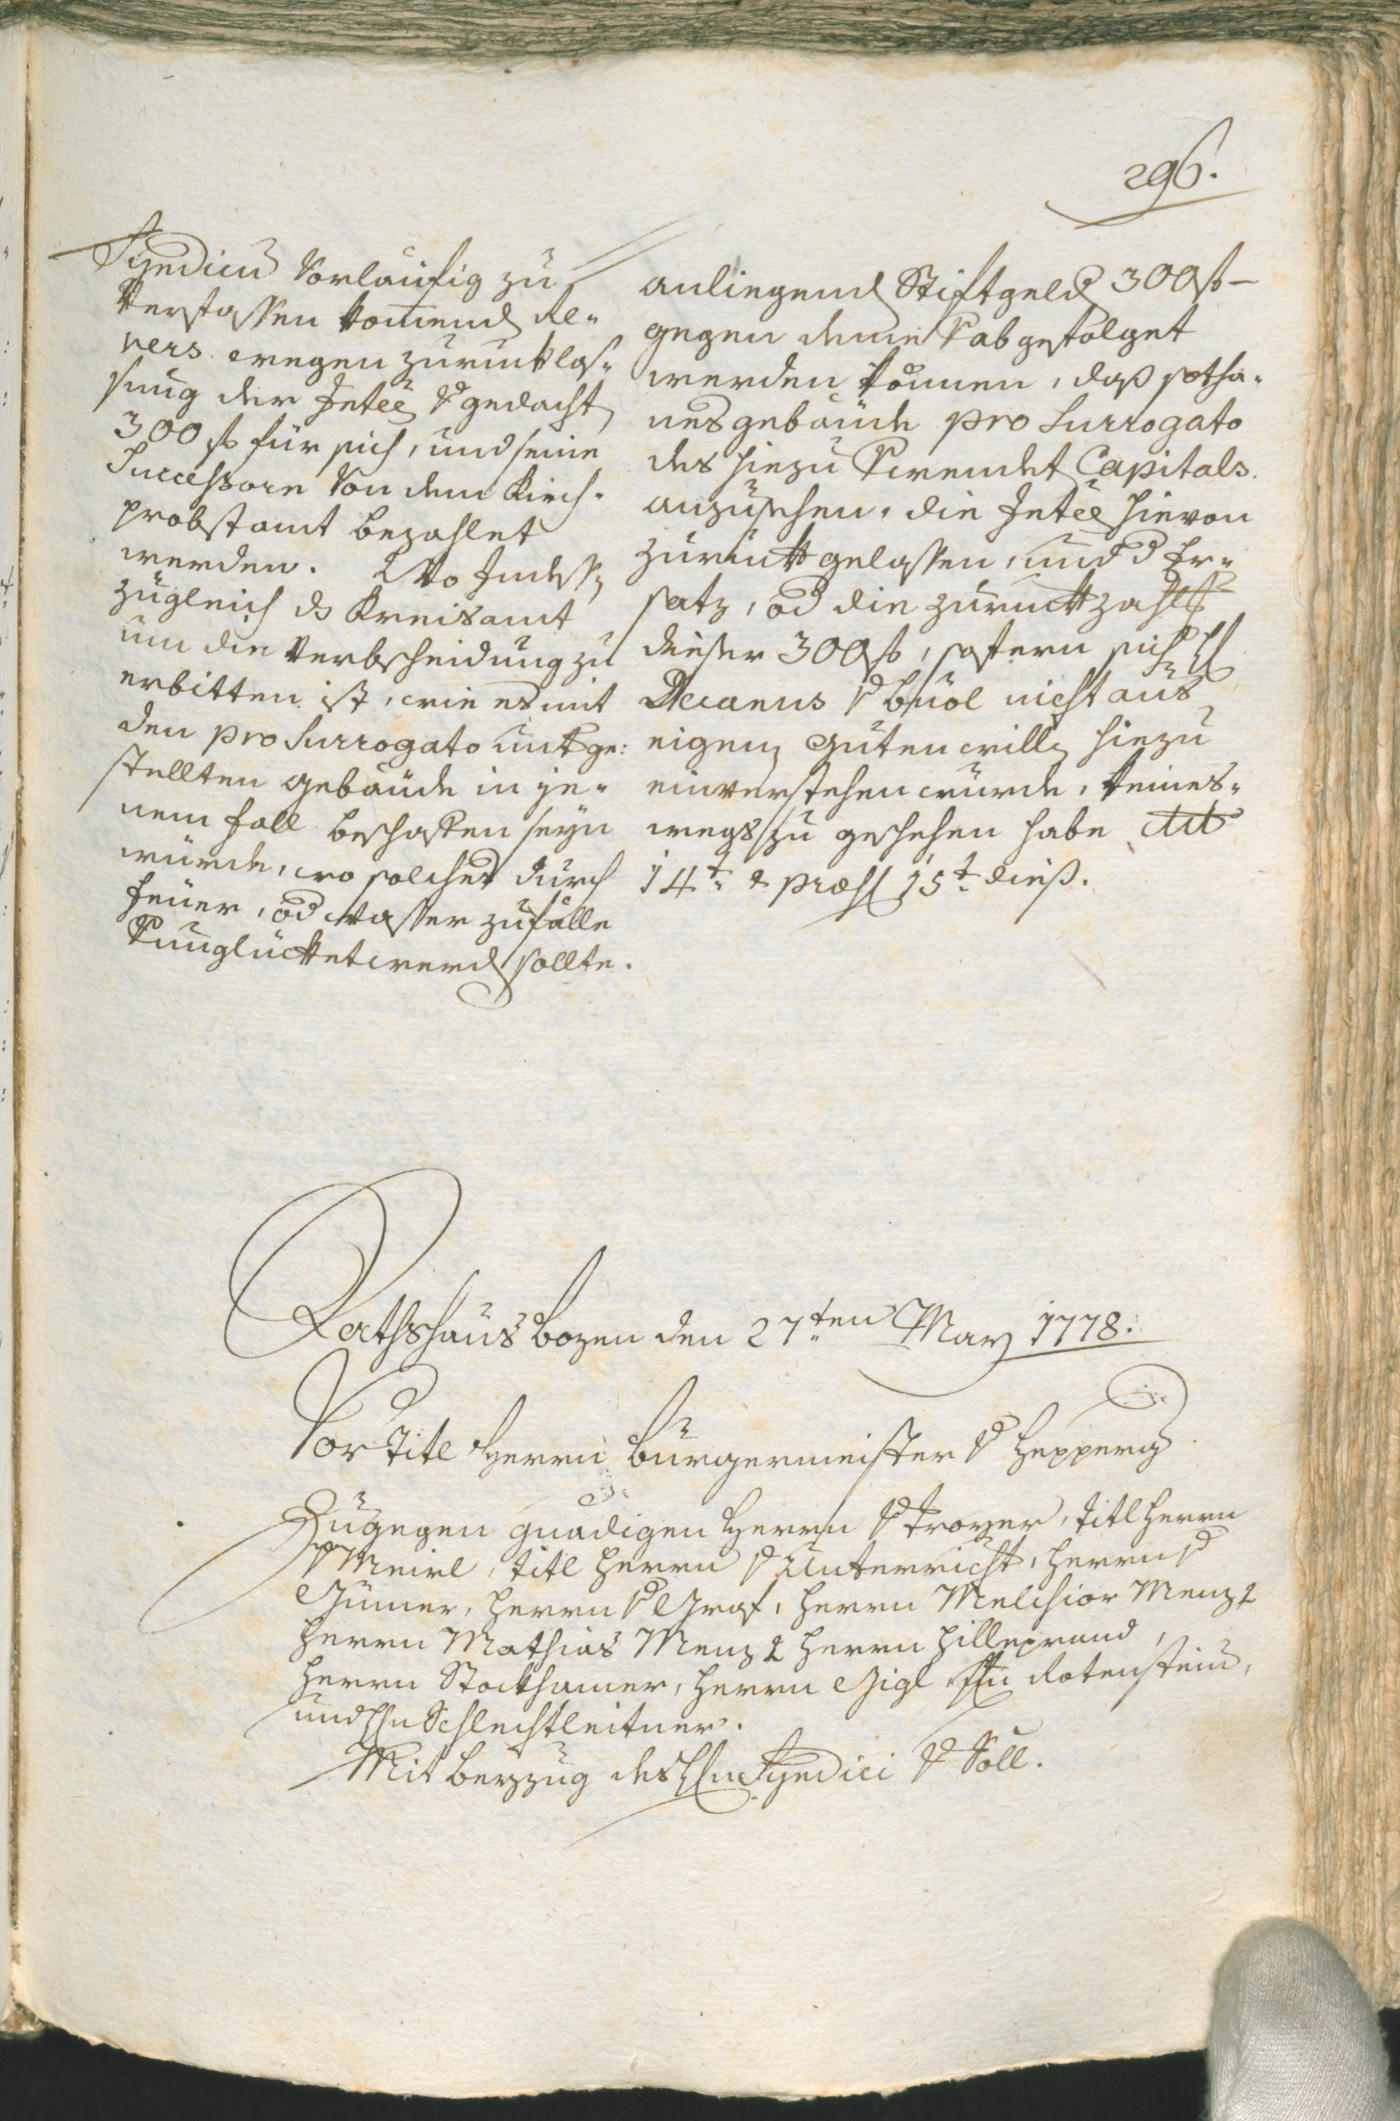 296.
Syndicus vorläufig zu
verfassen komend Re-
vers wegen zurucklas-
sung der Intèe v gedacht
300 f für sich, und seine
Successorn von dem Kirch-
probstamt bezahlet
werden. Wo Indessen
zugleich ds Kreisamt
um die Verbscheidung zu
erbitten ist, wie es mit
den pro Surrogato unterge:
stellten Gebäude in je-
nem fall beschaffen seyn
würde, wo solches durch
feuer, od wasser zufälle
verunglücket werd sollte.
anliegend Stiftgeld 300 f –
gegen deme verabgefolget
werden können, daß sotha-
nes gebäude pro Surrogato
des hiezu verwendet Capitals
anzusehen, die Intèe hievon
zuruckgelassen, und d Er-
satz, od die zuruckzahlung
dieser 300 f, sofern sich H
Decanus v Buol nicht aus
eigen guten willen hiezu
einverstehen wurde, keines-
wegs zu geschehen habe
14t & praes 15t dieß.
Rathshaus Bozen den 27ten May 1778.
Vor Titl Herrn Bürgermeister v Hepperg
Zugegen gnädigen Herrn v Troyer, Titl Herrn
v Meirl, Titl Herrn v Unterricht, Herrn v
Gumer, Herrn v Graf, Herrn Melchior Menz
Herrn Mathias Menz Herrn Hilleprand,
Herrn Stockhamer, Herrn Gigl Hn Rotenstein,
und Hn Schlechtleitner.
Mit Beyzug des Hn Syndici v Söll.